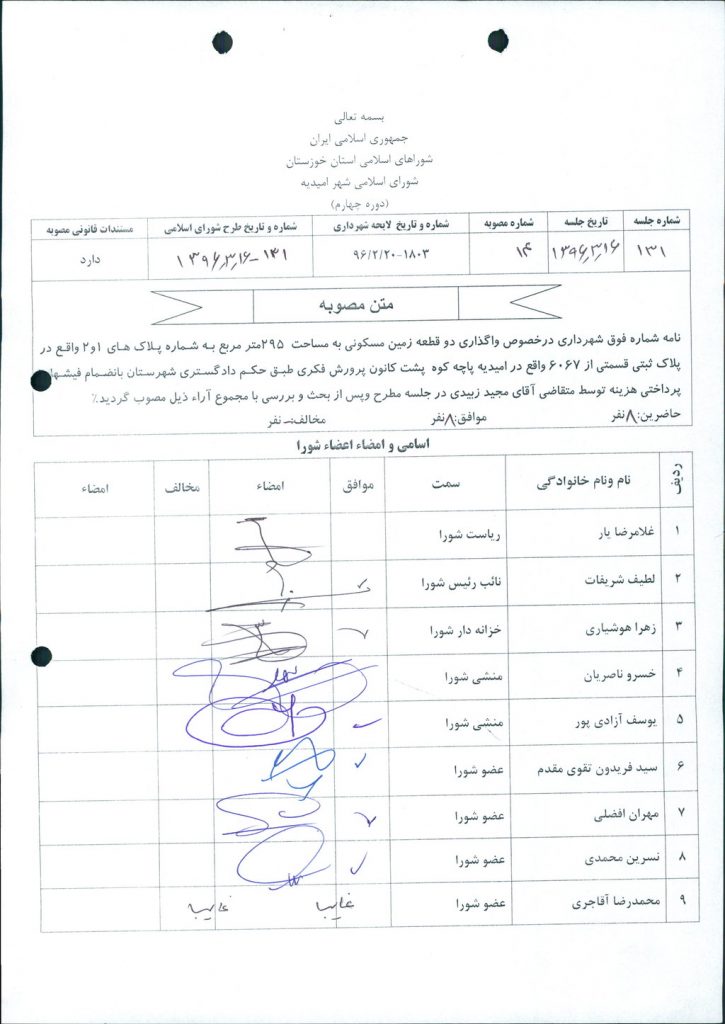 بسمه تعالی
جمهوری اسلامی ایران
شوراهای اسلامی استان خوزستان
شورای اسلامی شهر امیدیه
(دوره چهارم)
شماره جلسه تاریخ جلسه شماره مصوبه شماره و تاریخ لایحه شهرداری شماره و تاریخ طرح شورای اسلامی مستندات قانونی مصوبه
۱۳۱ ۱۳۹۶٫۳٫۱۶ ۱۴ ۹۶/۲/۲۰-۱۸۰۳ ۱۳۱-۱۳۹۶٫۳٫۱۶ دارد
متن مصوبه
نامه شماره فوق شهرداری درخصوص واگذاری دو قطعه زمین مسکونی به مساحت ۲۹۵متر مربع به شماره پلاک های ۱و۲ واقع در
پلاک ثبتی قسمتی از ۶۰۶۷ واقع در امیدیه پاچه کوه پشت کانون پرورش فکری طبق حکم دادگستری شهرستان بانضمام فیشهای
پرداختی هزینه توسط متقاضی آقای مجید زبیدی در جلسه مطرح وپس از بحث و بررسی با مجموع آراء ذیل مصوب گردید٪
حاضرین:۸نفر موافق:۸نفر مخالف:-نفر
اسامی و امضاء اعضاء شورا
ردیف نام ونام خانوادگی سمت موافق امضاء مخالف امضاء
۱ غلامرضا یار ریاست شورا
۲ لطیف شریفات نائب رئیس شورا
۳ زهرا هوشیاری خزانه دار شورا
۴ خسرو ناصریان منشی شورا
۵ یوسف آزادی پور منشی شورا
۶ سید فریدون تقوی مقدم عضو شورا
۷ مهران افضلی عضو شورا
۸ نسرین محمدی عضو شورا
۹ محمدرضا آقاجری عضو شورا غایب غایب